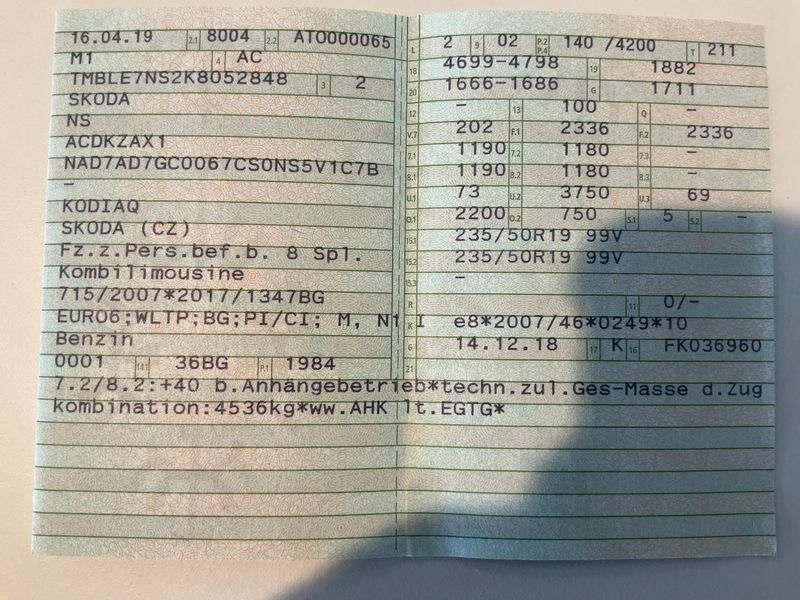 16.04.19 2.1 8004 2.2 ATO000065
M1 4 AC
TMBLE7NS2K8052848 3 2
SKODA
NS
ACDKZAX1
NAD7AD7GC0067CS0NS5V1C7B
–
KODIAQ
SKODA (CZ)
Fz.z.Pers.bef.b. 8 Spl.
Kombilimousine
715/2007*2017/1347BG
EURO6;WLTP;BG;PI/CI; M, N1 I
Benzin
0001 14.1 36BG P.1 1984
L 2 9 02 P.2 P.4 140 /4200 T 211
18 4699-4798 19 1882
20 1666-1686 G 1711
12 – 13 100 Q –
V.7 202 F.1 2336 F.2 2336
7.1 1190 7.2 1180 7.3 –
8.1 1190 8.2 1180 8.3 –
U.1 73 U.2 3750 U.3 69
O.1 2200 O.2 750 S.1 5 S.2 –
15.1 235/50R19 99V
15.2 235/50R19 99V
15.3 –
R 11 0/–
K e8*2007/46*0249*10
6 14.12.18 17 K 16 FK036960
21
7.2/8.2:+40 b.Anhängebetrieb*techn.zul.Ges-Masse d.Zug
kombination:4536kg*ww.AHK lt.EGTG*